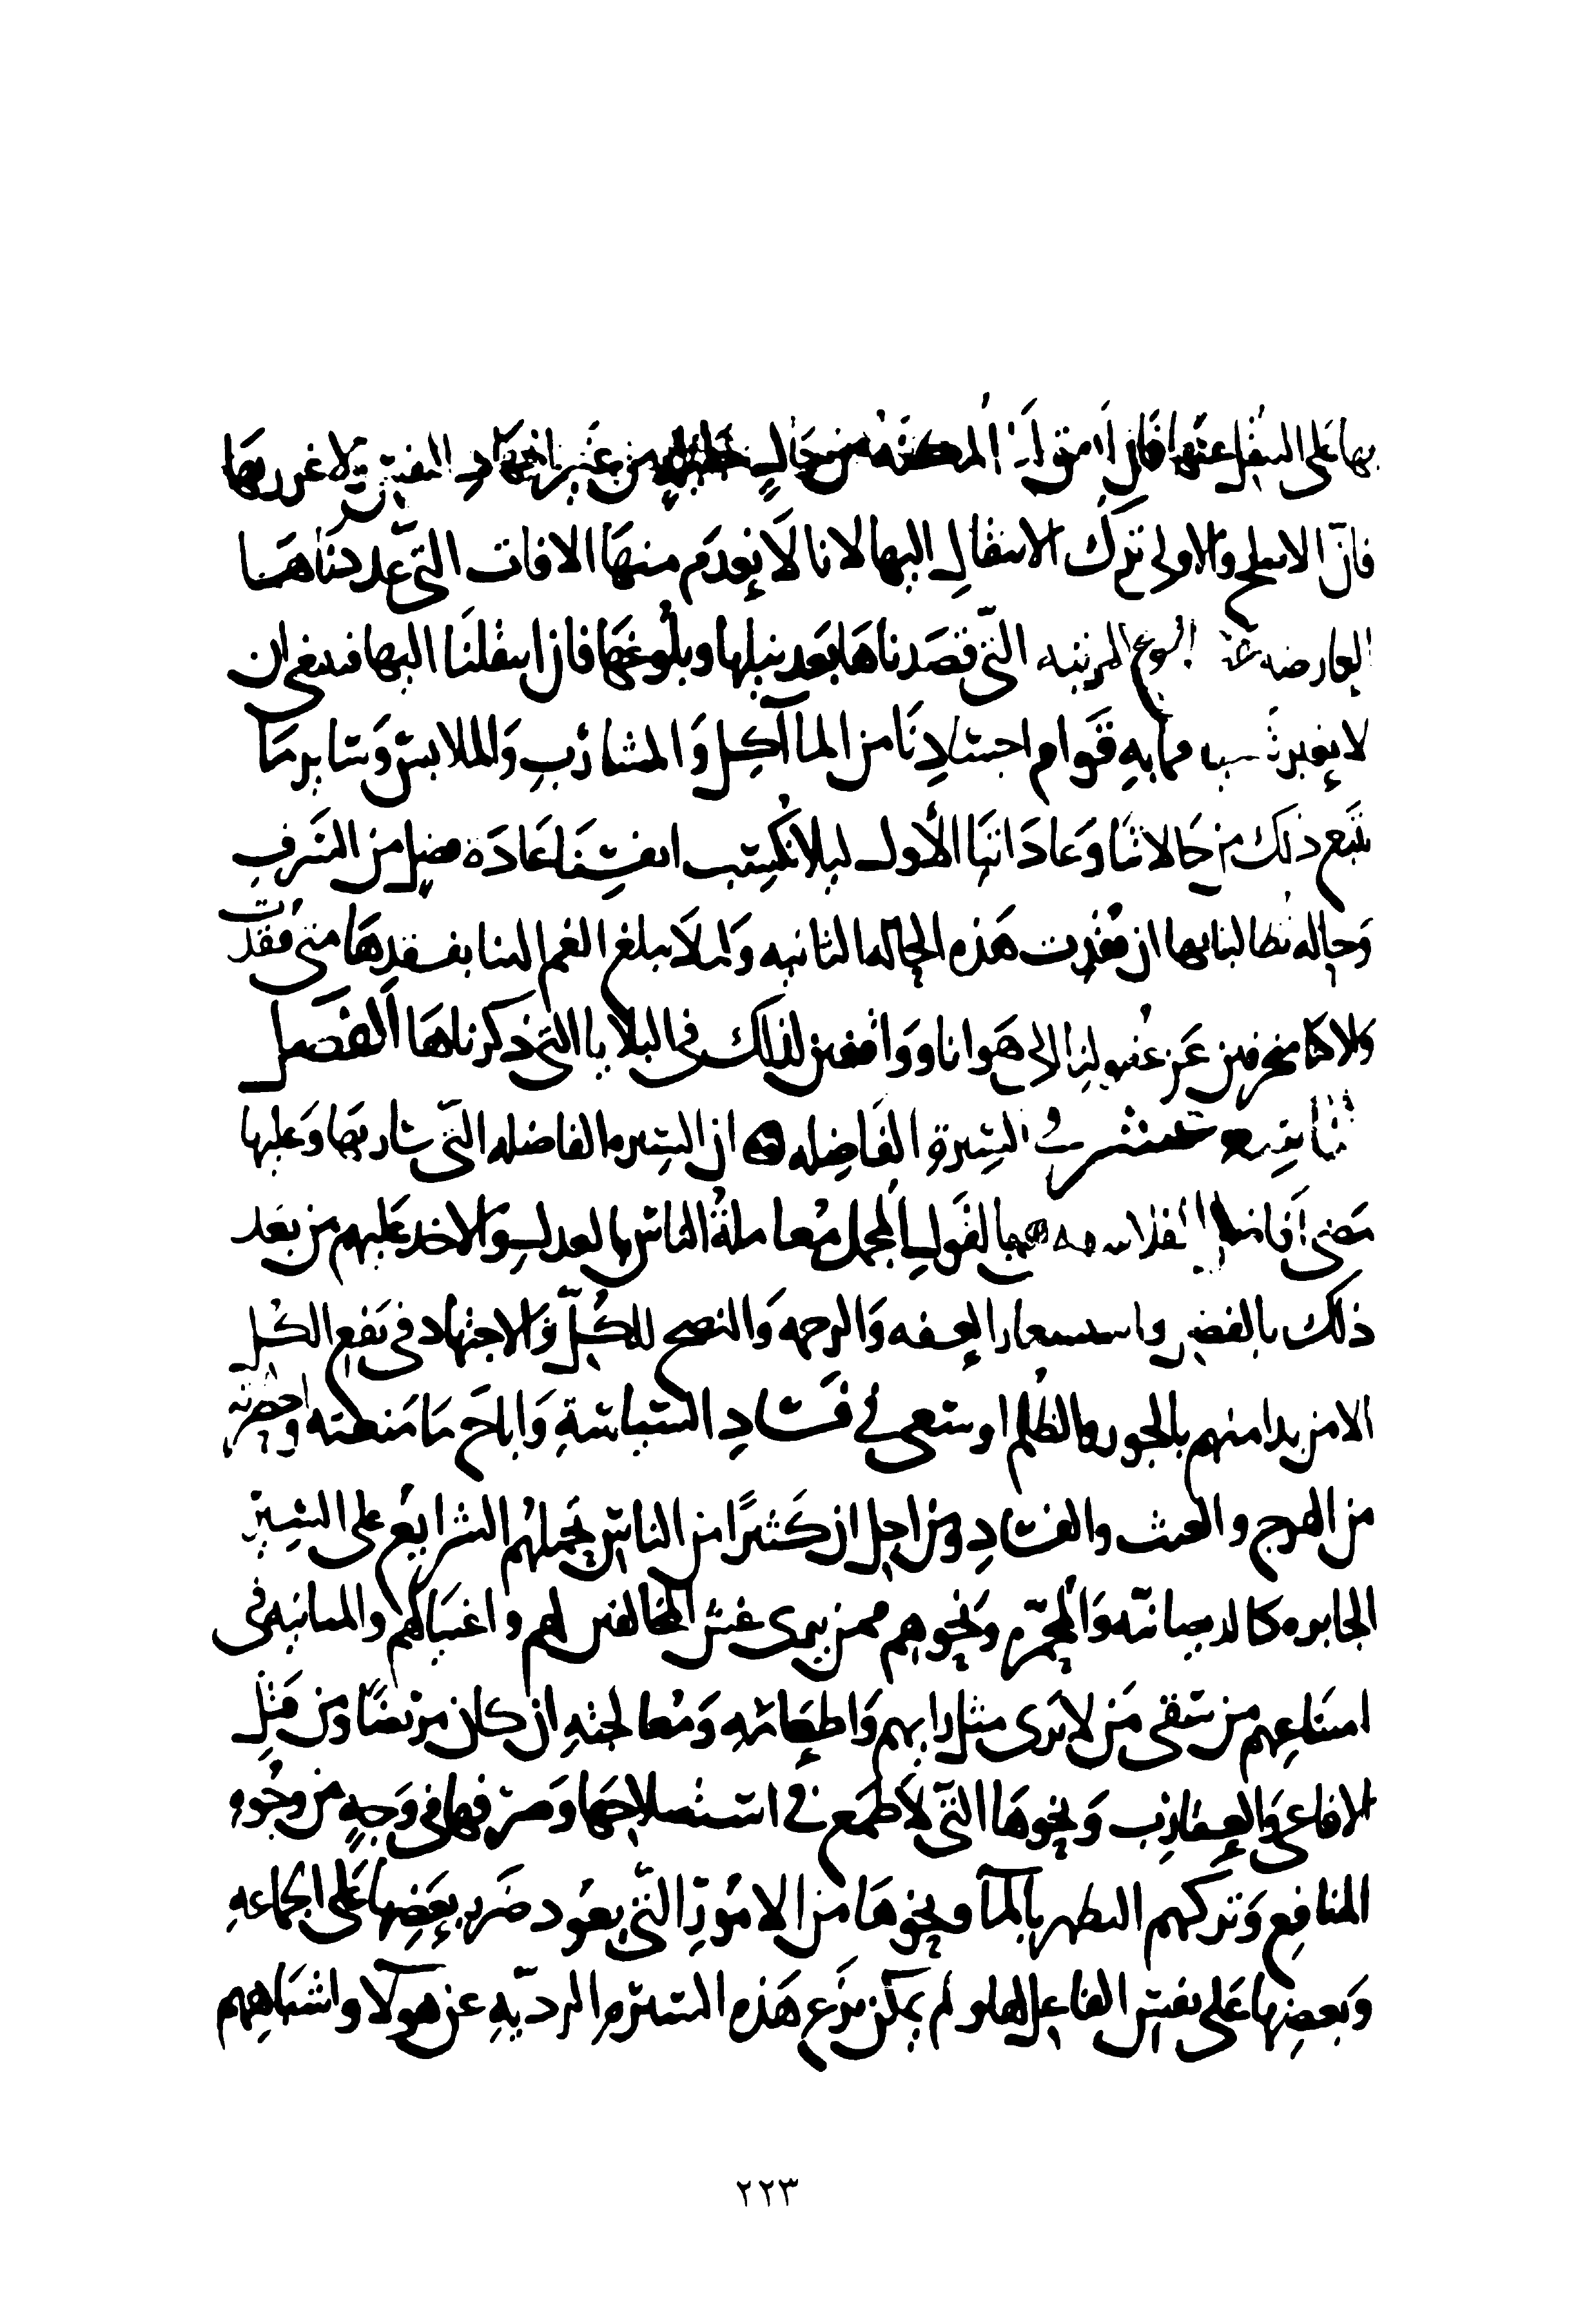 بها على التنقل عنها فان من غير اجهاد النفس ولا غرر بها
فان الاصلح والاولى ترك الانتقال اليها لانا لا نعدم منها الافات التي عددناها
العارضة المرتبه التي قصدناها بعد نيلها وبلوغها فان انتقلنا اليها فينبغي ان
لا نغير مما به قوام اجسادنا من المآكل والمشارب والملابس وسائر ما
تتبع ذلك من حالاتنا وعاداتنا الأول ليلا تكتسب انفسنا عادة فضل من السرف
وحاله تطالبنا بها ان فقدت هذه الحاله الثانيه وليلا يبلغ الغم الينا بفقدها متى فقدت
والا كنا منحرفين عن عقولنا الى هوانا وواقعين لذلك في البلايا التي ذكرناها الفصل
التاسع عشر في السيرة الفاضله ان السيره الفاضله التي سار بها وعليها
مضى افاضل الفلاسفه هي بالقول المجمل معاملة الناس بالعدل والاخذ عليهم من بعد
ذلك بالفضل واستشعار العفه والرحمه والنصح للكلّ والاجتهاد في نفع الكل
الا من بدا منهم بالجور والظلم او سعى في فساد السياسة واباح ما منعته وحضرته
من الهرج والعبث والفساد ومن اجل ان كثيرًا من الناس تحملهم الشرايع على السير
الجايره كالديصانيّه والمحمّره ونحوهم ممن يرى غش المخالفين لهم واغتيالهم والمنانيه في
امتناعهم من سقي من لا يرى مثل رايهم واطعامه ومعالجته ان كان مريضًا ومن قتل
الافاعي والعقارب ونحوها التي لا طمع في استصلاحها وصرفها في وجه من وجوه
المنافع وتركهم التطهر بالمآ ونحوها من الامور التي يعود ضرر بعضها على الجماعه
وبعضها على نفس الفاعل لها ولم يمكن نزع هذه السيره الرديّه عن هولآ واشباههم
٢٢٣